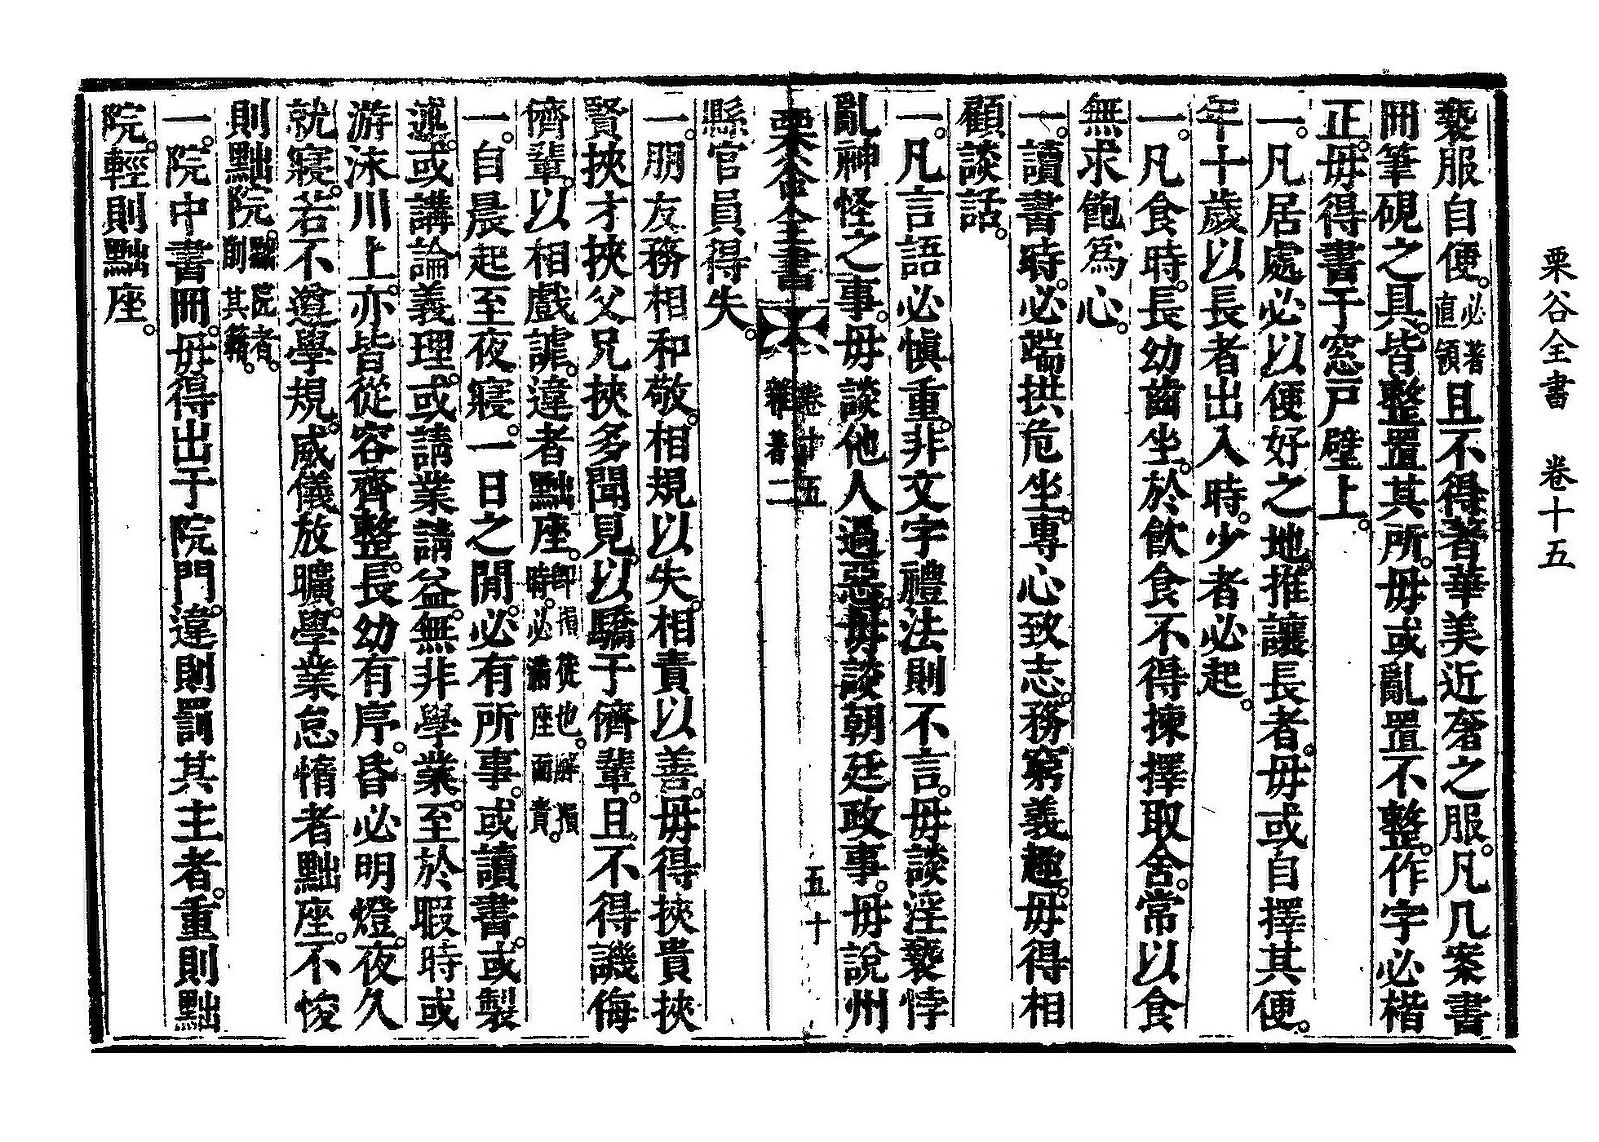 栗谷全書 卷十五
褻服自便。必著直領且不得著華美近奢之服。凡几案書
冊筆硯之具。皆整置其所。毋或亂置不整。作字必楷
正。毋得書于窓戶壁上。
一。凡居處必以便好之地。推讓長者。毋或自擇其便。
年十歲以長者出入時。少者必起。
一。凡食時。長幼齒坐。於飮食不得揀擇取舍。常以食
無求飽爲心。
一。讀書時。必端拱危坐。專心致志。務窮義趣。毋得相
顧談話。
一。凡言語必愼重。非文字禮法則不言。毋談淫褻悖
亂神怪之事。毋談他人過惡。毋談朝廷政事。毋說州
栗谷全書 卷十五 雜著二 五十
縣官員得失。
一。朋友務相和敬。相規以失。相責以善。毋得挾貴挾
賢挾才挾父兄挾多聞見。以驕于儕輩。且不得譏侮
儕輩。以相戲謔。違者黜座。卽損從也。解損時。必滿座面責。
一。自晨起至夜寢。一日之閒。必有所事。或讀書。或製
述。或講論義理。或請業請益。無非學業。至於暇時或
游泳川上。亦皆從容齊整。長幼有序。昏必明燈。夜久
就寢。若不遵學規。威儀放曠。學業怠惰者黜座。不悛
則黜院。黜院者。削其籍。
一。院中書冊。毋得出于院門。違則罰其主者。重則黜
院。輕則黜座。